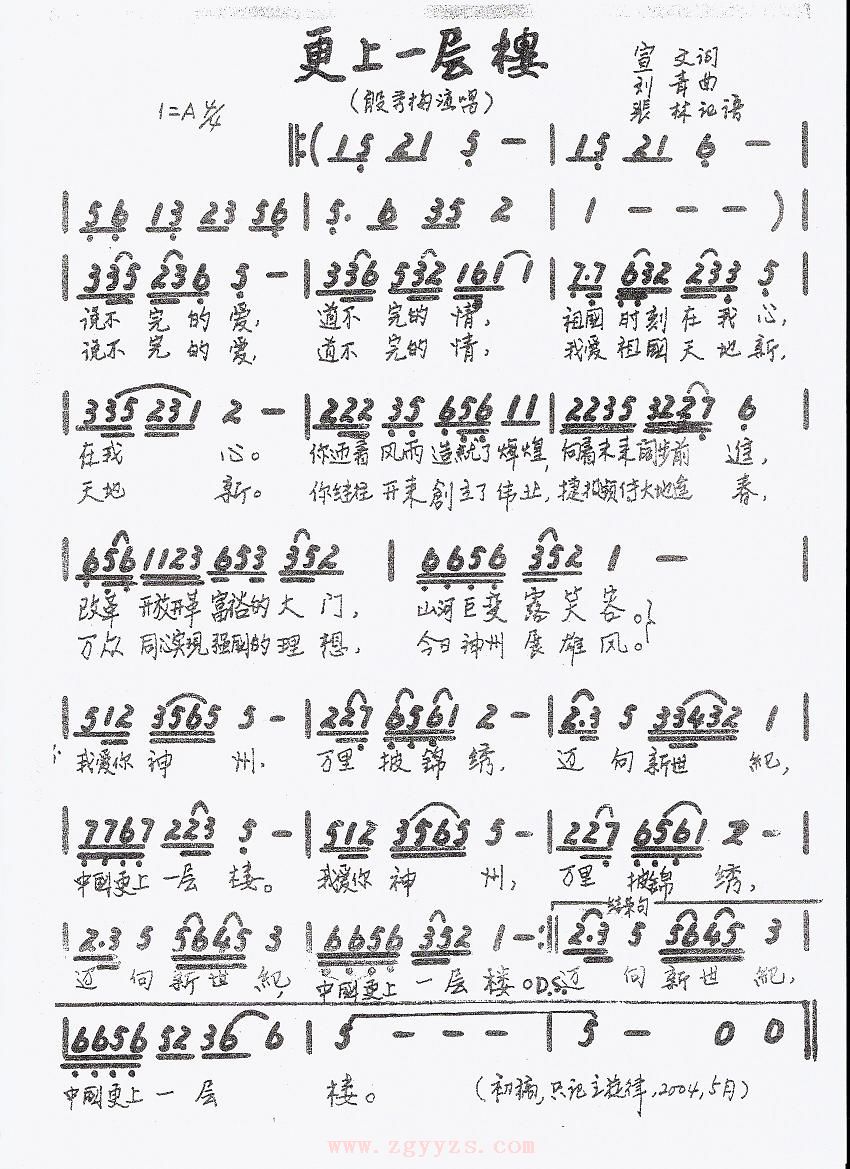 更上一层楼
宣 文词
刘 青曲
张 林记谱
(殷秀梅演唱)
1=A 4/4
(15 21 5 - | 15 21 6 - |
| 56 13 23 56 | 5. 6 35 2 | 1 - - - ) |
| 335 236 5 - | 336 532 161 1 | 7.7 632 233 5 |
说不 完的爱, 道不 完的 情, 祖國 时刻在我 心,
说不 完的爱, 道不 完的 情, 我爱祖國天地新,
| 335 231 2 - | 222 35 656 11 | 2235 3227 6 |
在我 心。 你迎着风雨造就了辉煌, 向着未来阔步前 進,
天地 新。 你继往开来創立了伟业, 捷报频传大地逢 春,
| 656 1123 653 352 | 6656 352 1 - |
改革 开放开革 富裕的大门, 山河巨变 露笑容。
万众 同心实现强國的理想, 今日神州 展雄风。
| 512 3565 5 - | 227 6561 2 - | 2.3 5 33432 1 |
我爱你神 州, 万里 披锦 绣, 迈 向新世 紀,
| 7767 223 5 - | 512 3565 5 - | 227 6561 2 - |
中國更上一层 楼。 我爱你神 州, 万里 披锦 绣,
结束句
| 2.3 5 5645 3 | 6656 352 1 - :| 2.3 5 5645 3 |
迈 向新世 紀, 中國更上一层楼。D.S. 迈 向新世 紀,
| 6656 52 36 6 | 5 - - - | 5 - 0 0 ||
中國更上一 层 楼。 (初稿,只记主旋律,2004,5月)
www.zgyyzs.com